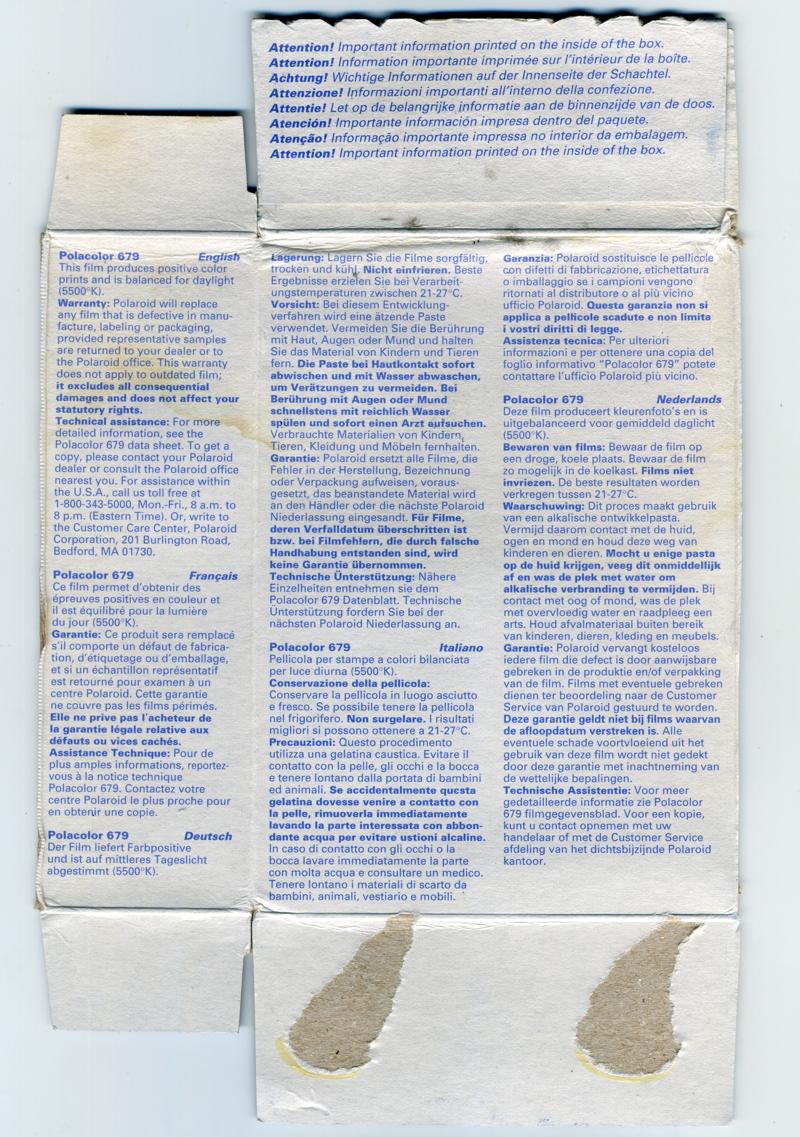 Attention! Important information printed on the inside of the box.
Attention! Information importante imprimée sur l'intérieur de la boîte.
Achtung! Wichtige Informationen auf der Innenseite der Schachtel.
Attenzione! Informazioni importanti all'interno della confezione.
Attentie! Let op de belangrijke informatie aan de binnenzijde van de doos.
Atención! Importante información impresa dentro del paquete.
Atenção! Informação importante impressa no interior da embalagem.
Attention! Important information printed on the inside of the box.
Polacolor 679 English
This film produces positive color
prints and is balanced for daylight
(5500°K).
Warranty: Polaroid will replace
any film that is defective in manu-
facture, labeling or packaging,
provided representative samples
are returned to your dealer or to
the Polaroid office. This warranty
does not apply to outdated film;
it excludes all consequential
damages and does not affect your
statutory rights.
Technical assistance: For more
detailed information, see the
Polacolor 679 data sheet. To get a
copy, please contact your Polaroid
dealer or consult the Polaroid office
nearest you. For assistance within
the U.S.A., call us toll free at
1-800-343-5000, Mon.-Fri., 8 a.m. to
8 p.m. (Eastern Time). Or, write to
the Customer Care Center, Polaroid
Corporation, 201 Burlington Road,
Bedford, MA 01730.
Polacolor 679 Français
Ce film permet d'obtenir des
épreuves positives en couleur et
il est équilibré pour la lumière
du jour (5500°K).
Garantie: Ce produit sera remplacé
s'il comporte un défaut de fabrica-
tion, d'étiquetage ou d'emballage,
et si un échantillon représentatif
est retourné pour examen à un
centre Polaroid. Cette garantie
ne couvre pas les films périmés.
Elle ne prive pas l'acheteur de
la garantie légale relative aux
défauts ou vices cachés.
Assistance Technique: Pour de
plus amples informations, reportez-
vous à la notice technique
Polacolor 679. Contactez votre
centre Polaroid le plus proche pour
en obtenir une copie.
Polacolor 679 Deutsch
Der Film liefert Farbpositive
und ist auf mittleres Tageslicht
abgestimmt (5500°K).
Lagerung: Lagern Sie die Filme sorgfältig,
trocken und kühl. Nicht einfrieren. Beste
Ergebnisse erzielen Sie bei Verarbeit-
ungstemperaturen zwischen 21-27°C.
Vorsicht: Bei diesem Entwicklung-
verfahren wird eine ätzende Paste
verwendet. Vermeiden Sie die Berührung
mit Haut, Augen oder Mund und halten
Sie das Material von Kindern und Tieren
fern. Die Paste bei Hautkontakt sofort
abwischen und mit Wasser abwaschen,
um Verätzungen zu vermeiden. Bei
Berührung mit Augen oder Mund
schnellstens mit reichlich Wasser
spülen und sofort einen Arzt aufsuchen.
Verbrauchte Materialien von Kindern,
Tieren, Kleidung und Möbeln fernhalten.
Garantie: Polaroid ersetzt alle Filme, die
Fehler in der Herstellung, Bezeichnung
oder Verpackung aufweisen, voraus-
gesetzt, das beanstandete Material wird
an den Händler oder die nächste Polaroid
Niederlassung eingesandt. Für Filme,
deren Verfalldatum überschritten ist
bzw. bei Filmfehlern, die durch falsche
Handhabung entstanden sind, wird
keine Garantie übernommen.
Technische Ünterstützung: Nähere
Einzelheiten entnehmen sie dem
Polacolor 679 Datenblatt. Technische
Ünterstützung fordern Sie bei der
nächsten Polaroid Niederlassung an.
Polacolor 679 Italiano
Pellicola per stampe a colori bilanciata
per luce diurna (5500°K).
Conservazione della pellicola:
Conservare la pellicola in luogo asciutto
e fresco. Se possibile tenere la pellicola
nel frigorifero. Non surgelare. I risultati
migliori si possono ottenere a 21-27°C.
Precauzioni: Questo procedimento
utilizza una gelatina caustica. Evitare il
contatto con la pelle, gli occhi e la bocca
e tenere lontano dalla portata di bambini
ed animali. Se accidentalmente questa
gelatina dovesse venire a contatto con
la pelle, rimuoverla immediatamente
lavando la parte interessata con abbon-
dante acqua per evitare ustioni alcaline.
In caso di contatto con gli occhi o la
bocca lavare immediatamente la parte
con molta acqua e consultare un medico.
Tenere lontano i materiali di scarto da
bambini, animali, vestiario e mobili.
Garanzia: Polaroid sostituisce le pellicole
con difetti di fabbricazione, etichettatura
o imballaggio se i campioni vengono
ritornati al distributore o al più vicino
ufficio Polaroid. Questa garanzia non si
applica a pellicole scadute e non limita
i vostri diritti di legge.
Assistenza tecnica: Per ulteriori
informazioni e per ottenere una copia del
foglio informativo "Polacolor 679" potete
contattare l'ufficio Polaroid più vicino.
Polacolor 679 Nederlands
Deze film produceert kleurenfoto's en is
uitgebalanceerd voor gemiddeld daglicht
(5500°K).
Bewaren van films: Bewaar de film op
een droge, koele plaats. Bewaar de film
zo mogelijk in de koelkast. Films niet
invriezen. De beste resultaten worden
verkregen tussen 21-27°C.
Waarschuwing: Dit proces maakt gebruik
van een alkalische ontwikkelpasta.
Vermijd daarom contact met de huid,
ogen en mond en houd deze weg van
kinderen en dieren. Mocht u enige pasta
op de huid krijgen, veeg dit onmiddellijk
af en was de plek met water om
alkalische verbranding te vermijden. Bij
contact met oog of mond, was de plek
met overvloedig water en raadpleeg een
arts. Houd afvalmateriaal buiten bereik
van kinderen, dieren, kleding en meubels.
Garantie: Polaroid vervangt kosteloos
iedere film die defect is door aanwijsbare
gebreken in de produktie en/of verpakking
van de film. Films met eventuele gebreken
dienen ter beoordeling naar de Customer
Service van Polaroid gestuurd te worden.
Deze garantie geldt niet bij films waarvan
de afloopdatum verstreken is. Alle
eventuele schade voortvloeiend uit het
gebruik van deze film wordt niet gedekt
door deze garantie met inachtneming van
de wettelijke bepalingen.
Technische Assistentie: Voor meer
gedetailleerde informatie zie Polacolor
679 filmgegevensblad. Voor een kopie,
kunt u contact opnemen met uw
handelaar of met de Customer Service
afdeling van het dichtsbijzijnde Polaroid
kantoor.